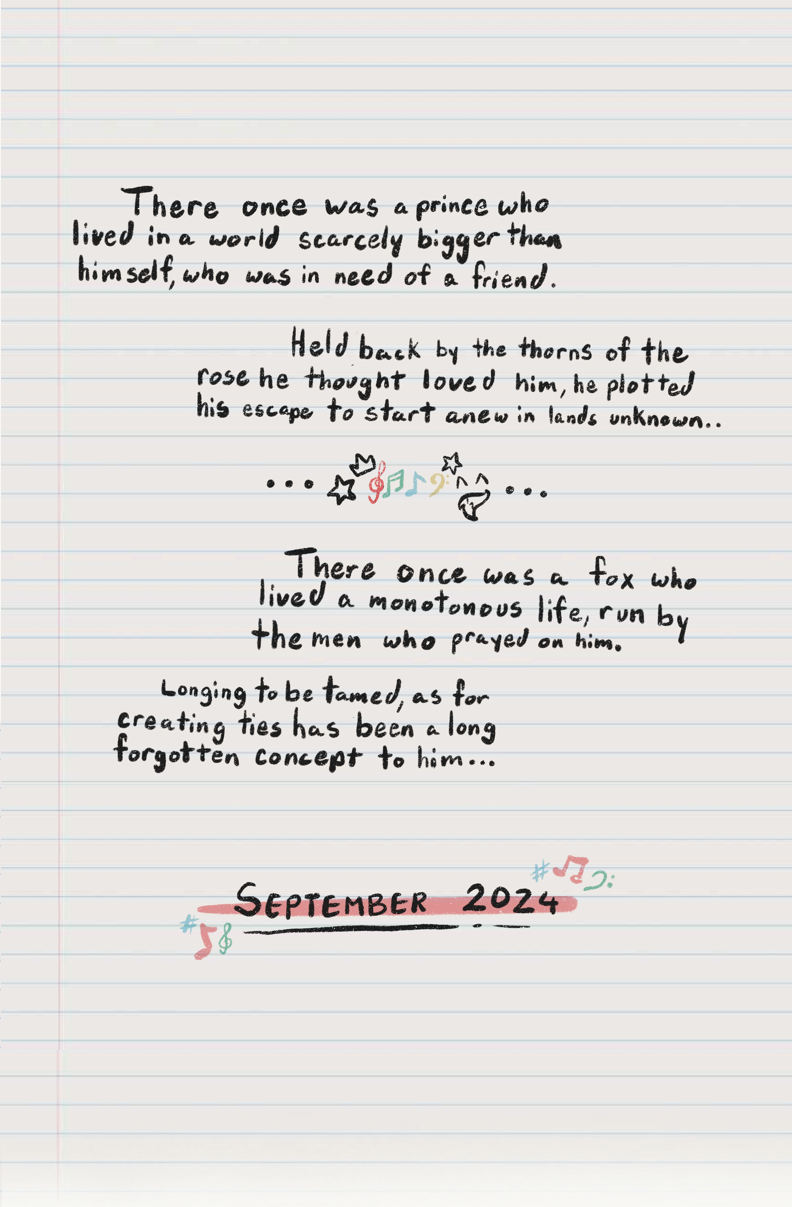 There once was a prince who
lived in a world scarcely bigger than
himself, who was in need of a friend.
Held back by the thorns of the
rose he thought loved him, he plotted
his escape to start anew in lands unknown..
... ...
There once was a fox who
lived a monotonous life, run by
the men who prayed on him.
Longing to be tamed, as for
creating ties has been a long
forgotten concept to him...
SEPTEMBER 2024